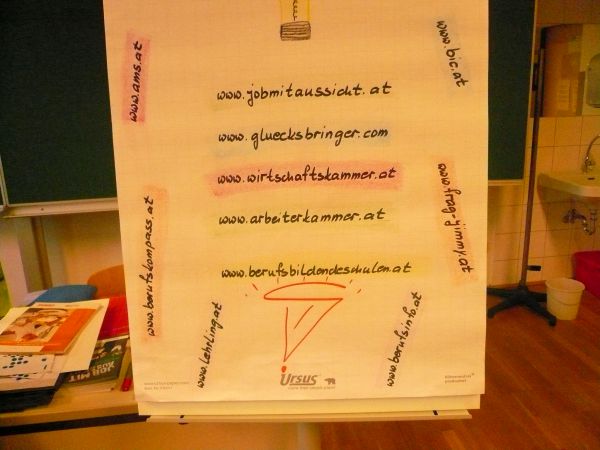 www.ams.at
www.bic.at
www.jobmitaussicht.at
www.gluecksbringer.com
www.wirtschaftskammer.at
www.arbeiterkammer.at
www.berufsbildendeschulen.at
www.berufskompass.at
www.frag-jimmy.at
www.lehrling.at
www.berufsinfo.at
Ursus
JOB MIT